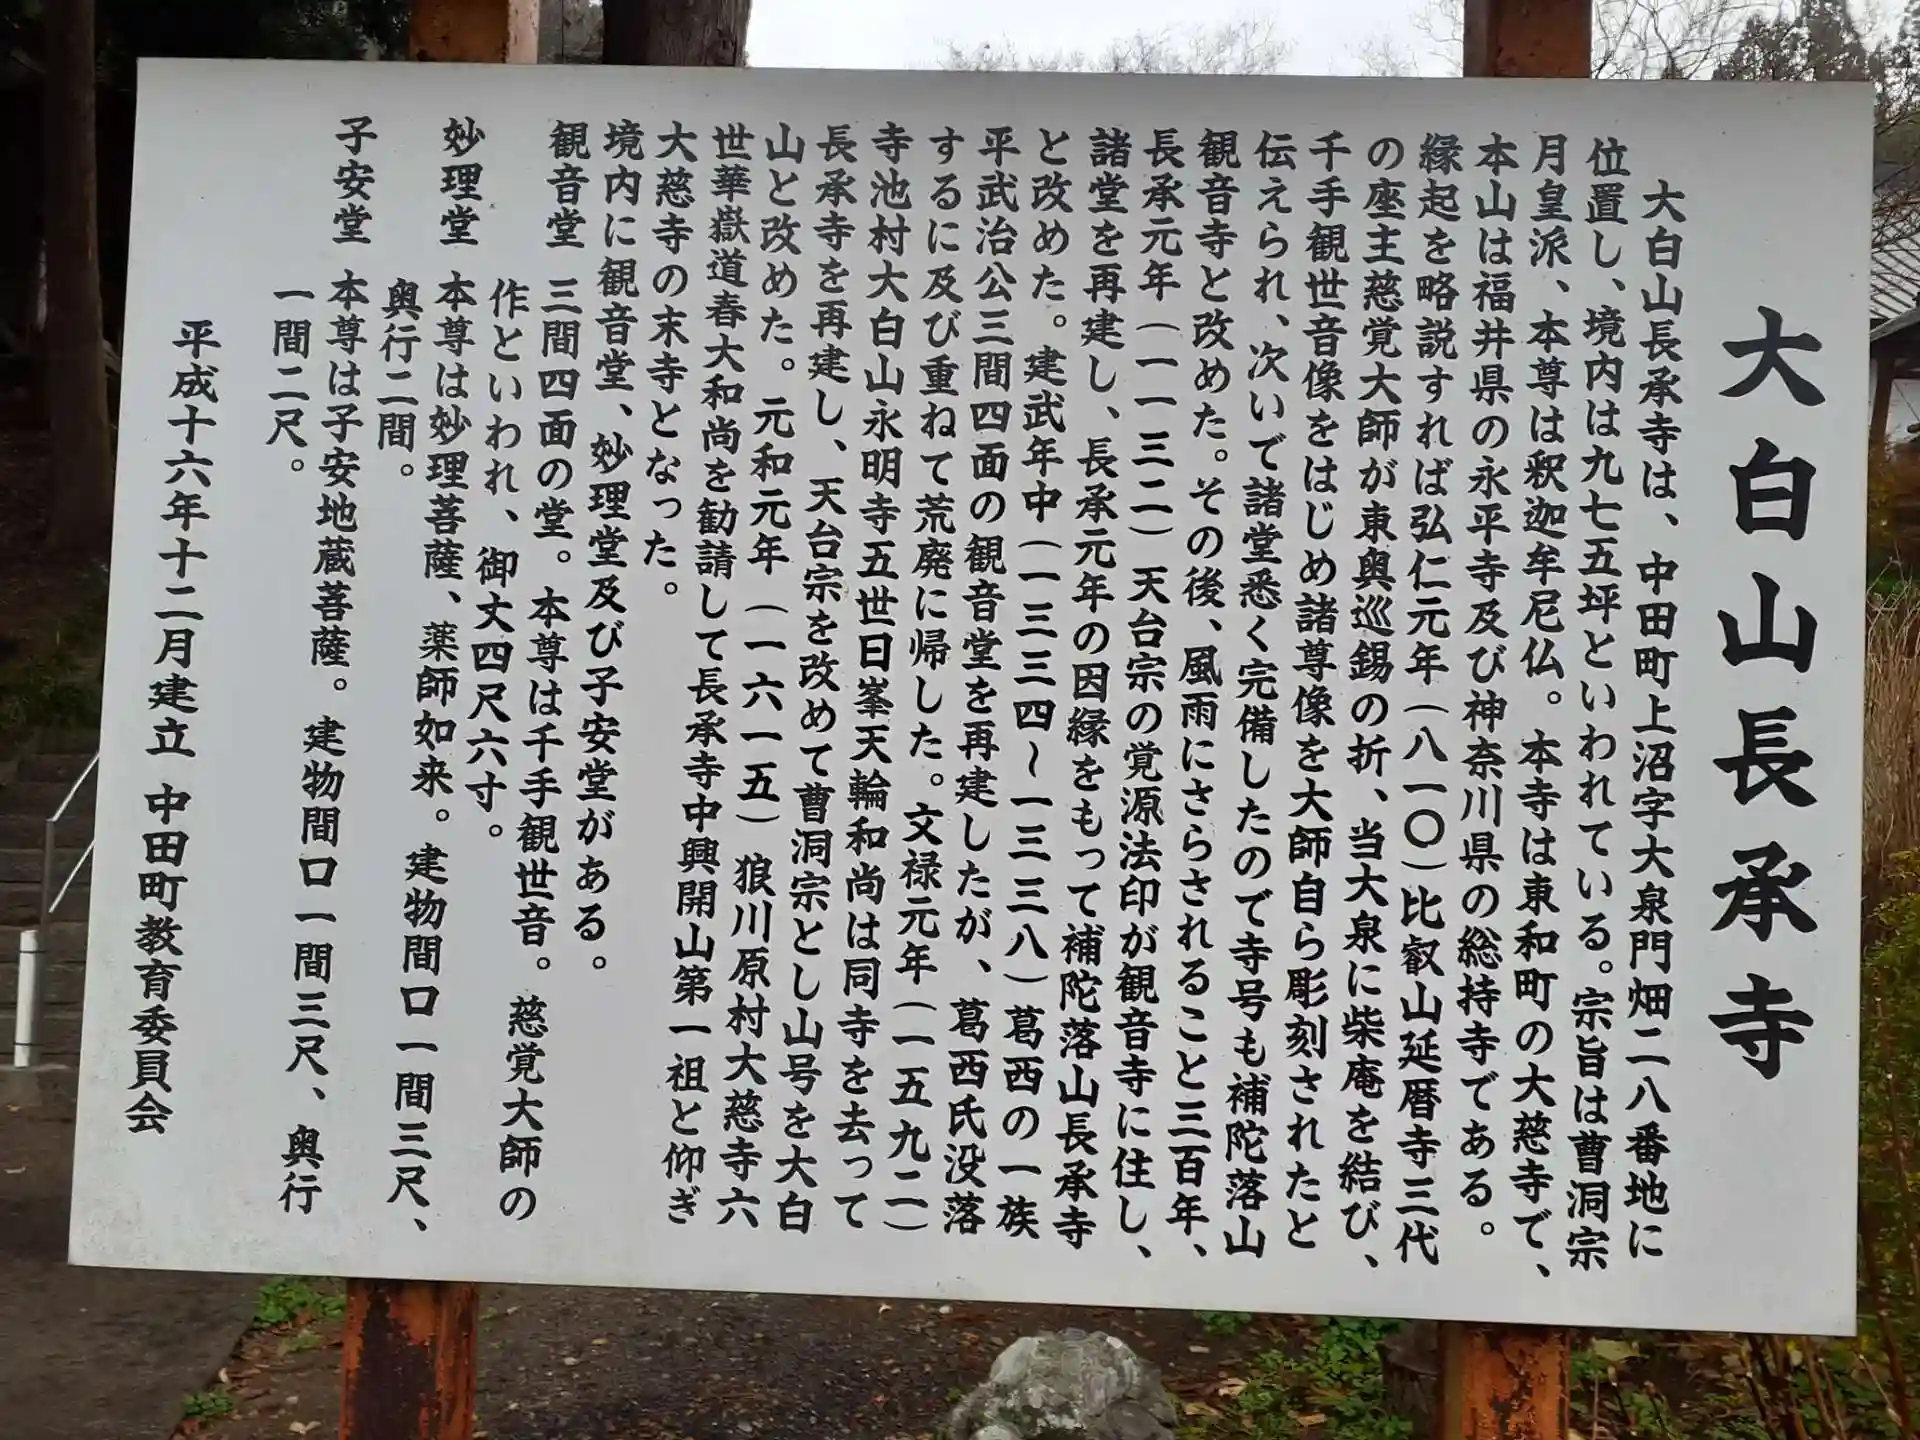 大白山長承寺
大白山長承寺は、中田町上沼字大泉門畑二八番地に
位置し、境内は九七五坪といわれている。宗旨は曹洞宗
月皇派、本尊は釈迦牟尼仏。本寺は東和町の大慈寺で、
本山は福井県の永平寺及び神奈川県の総持寺である。
縁起を略説すれば弘仁元年（八一〇）比叡山延暦寺三代
の座主慈覚大師が東奥巡錫の折、当大泉に柴庵を結び、
千手観世音像をはじめ諸尊像を大師自ら彫刻されたと
伝えられ、次いで諸堂悉く完備したので寺号も補陀落山
観音寺と改めた。その後、風雨にさらされること三百年、
長承元年（一一三二）天台宗の覚源法印が観音寺に住し、
諸堂を再建し、長承元年の因縁をもって補陀落山長承寺
と改めた。建武年中（一三三四～一三三八）葛西の一族
平武治公三間四面の観音堂を再建したが、葛西氏没落
するに及び重ねて荒廃に帰した。文禄元年（一五九二）
寺池村大白山永明寺五世日峯天輪和尚は同寺を去って
長承寺を再建し、天台宗を改めて曹洞宗とし山号を大白
山と改めた。元和元年（一六一五）狼川原村大慈寺六
世華嶽道春大和尚を勧請して長承寺中興開山第一祖と仰ぎ
大慈寺の末寺となった。
境内に観音堂、妙理堂及び子安堂がある。
観音堂　三間四面の堂。本尊は千手観世音。慈覚大師の
作といわれ、御丈四尺六寸。
妙理堂　本尊は妙理菩薩、薬師如来。建物間口一間三尺、
奥行二間。
子安堂　本尊は子安地蔵菩薩。建物間口一間三尺、奥行
一間二尺。
平成十六年十二月建立　中田町教育委員会